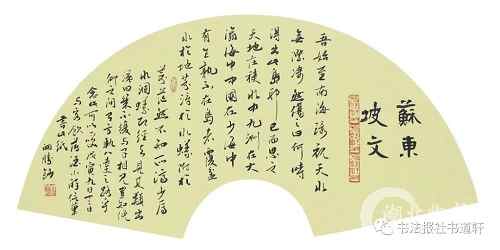 蘇東
坡文
吾始至南海環視天水
無際凄然傷之曰何時
得出此島耶已而思之
天地在積水中九洲在大
瀛海中中國在少海中
有生孰不在島者覆盆
水於地芥浮於水蟻附於
芥茫然不知所濟少焉
水涸蟻即徑去見其類出
涕曰幾不復與子相見豈知俯
仰之間有方軌八達之路乎
念此可以一笑戊寅九月十二日
與客飲薄酒小醉信筆
書此紙
书法报社书道轩